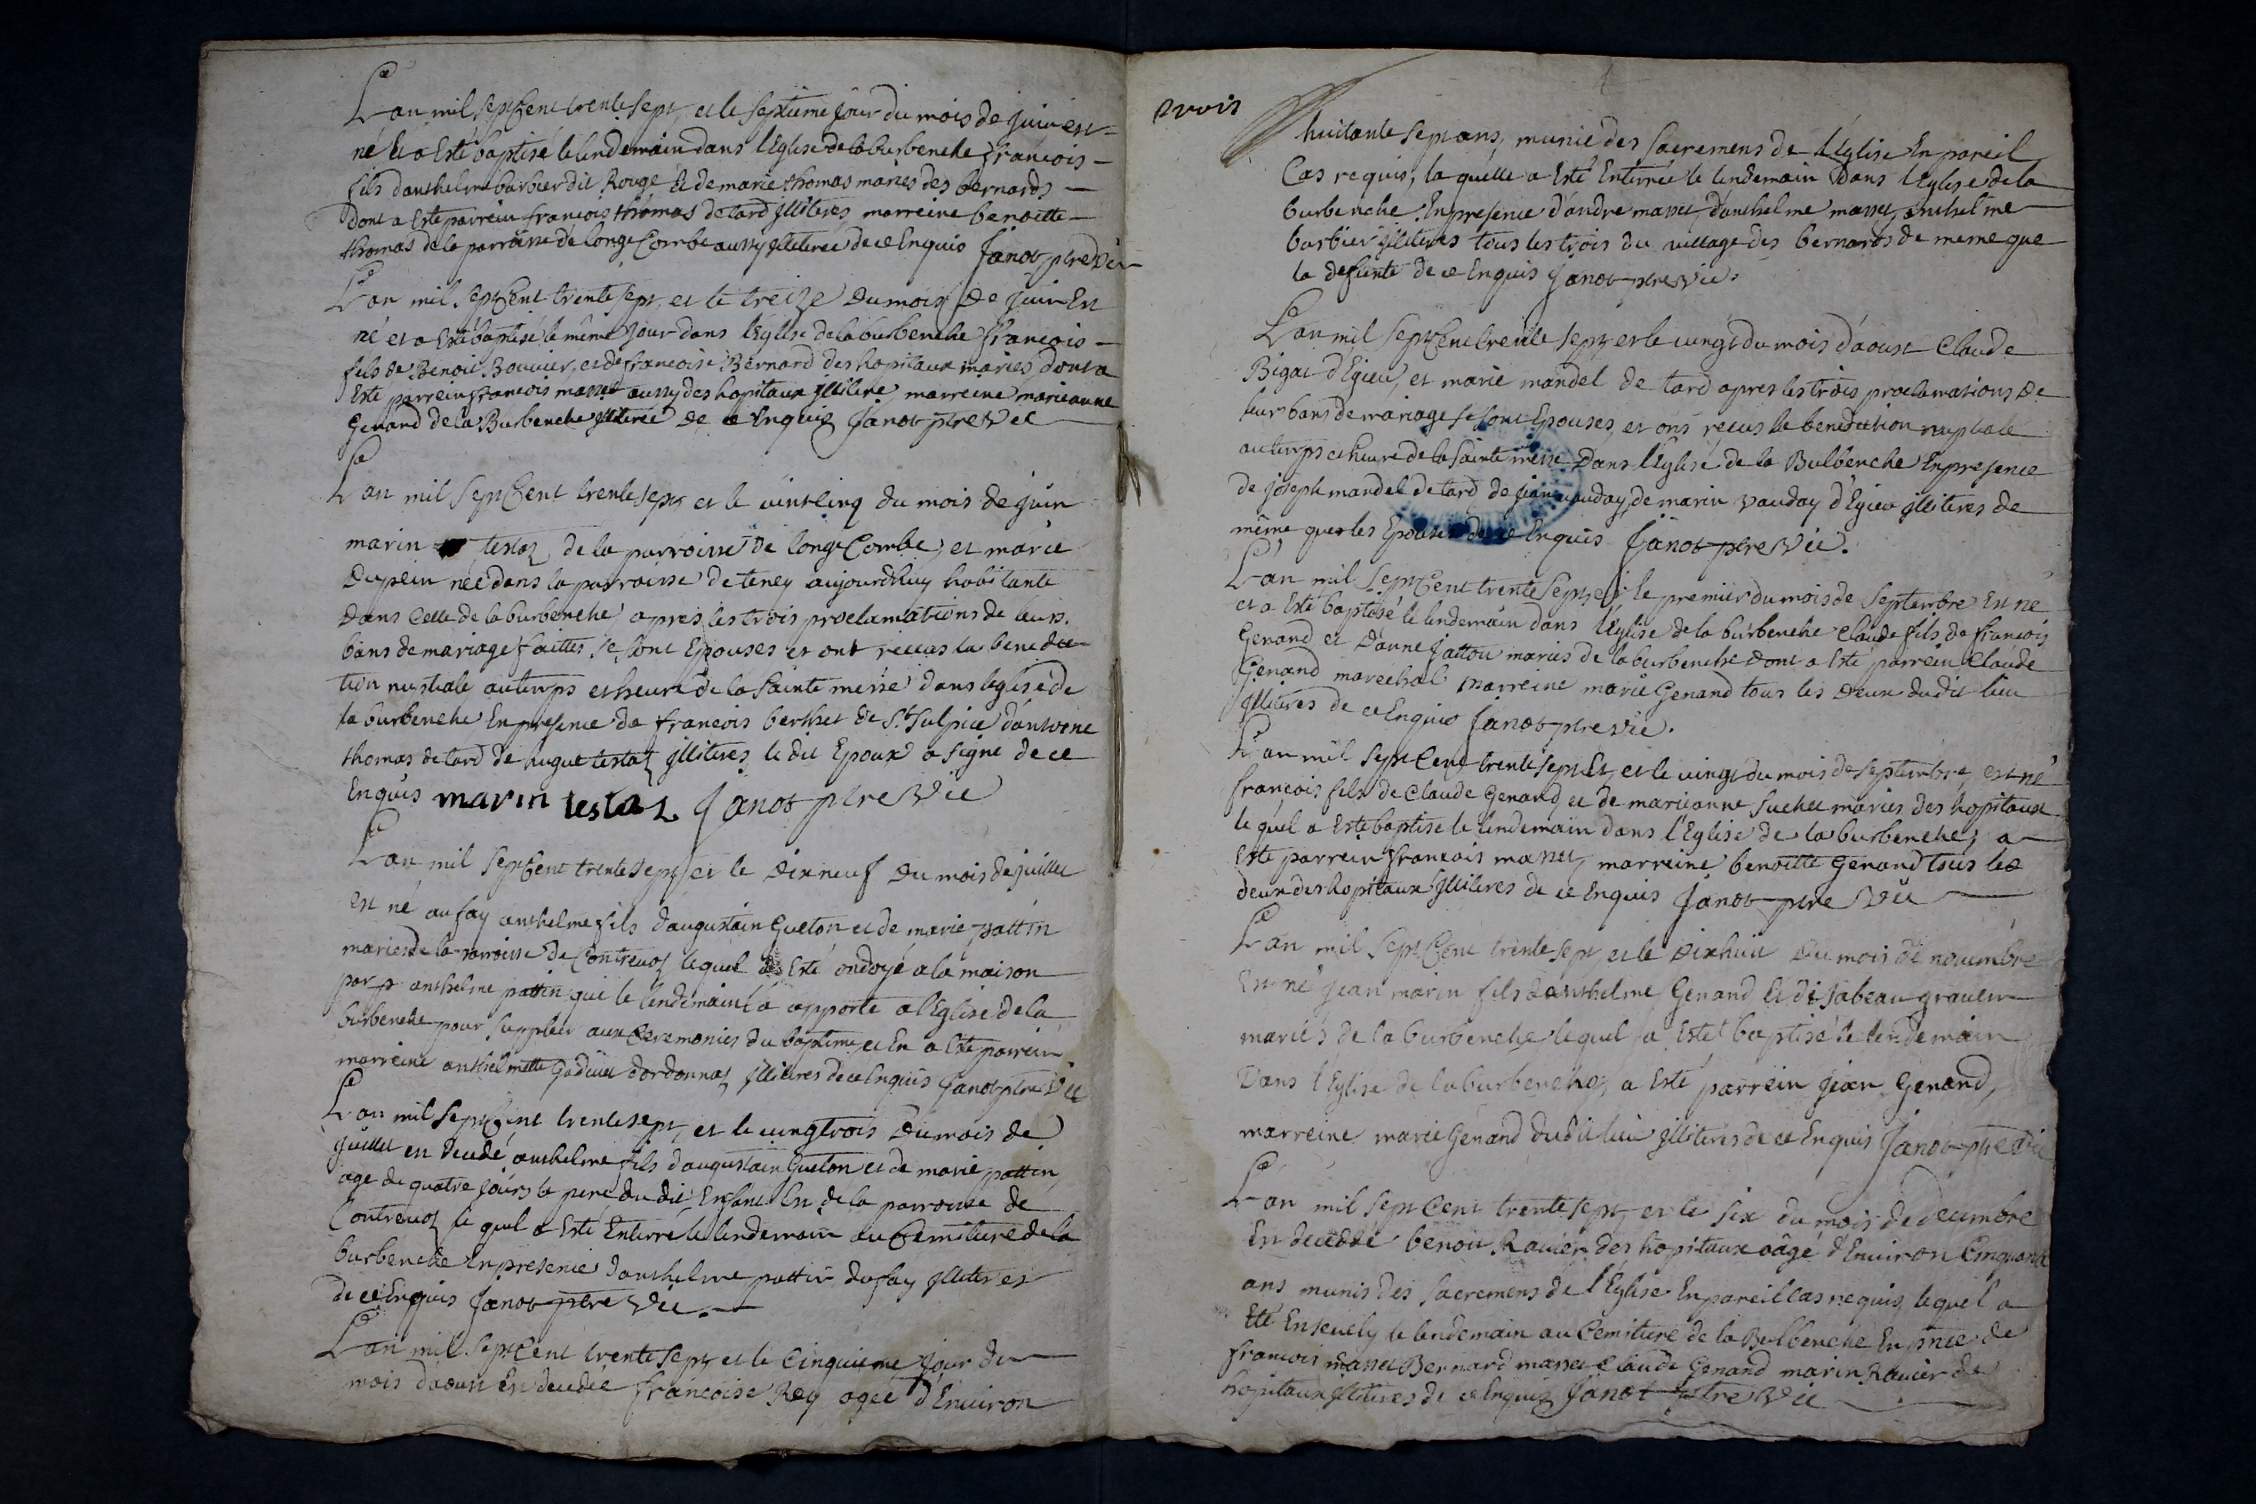 L'an mil sept Cent trente sept, et le septieme jour du mois de juin est
né Et a Esté baptisé le lendemain dans l'Eglise de la burbenche françois
fils d'anthelme barbier dit Rouge Et de marie thomas mariés des bernards
Dont a Esté parrein françois thomas de tard jlliterés, marreine benoitte
thomas de la parroisse de longe Combe aussy jlliterée de ce Enquis janot ptre Vic
L'an mil sept Cent trente sept, et le treize du mois de juin Est
né et a Esté baptisé le même jour dans l'Eglise de la burbenche françois
fils de Benoit Bouvier, et de francoise Bernard des hopitaux mariés, dont a
Esté parrein francois masset aussy des hopitaux jlliteré marreine marieanne
Genand de la Burbenche jlliterée de ce Enquis janot ptre Vic
L'an mil sept Cent trente sept et le vint cinq du mois de juin
marin testaz de la parroisse de longe Combe, et marie
Dupein née dans la parroisse de teney aujourdhuy habitante
dans Celle de la burbenche apres les trois proclamations de leurs
bans de mariage faittes se sont Epouses et ont recus la benedic
tion nuptiale au temps et heure de la sainte messe dans leglise de
la burbenche En presence de francois berthet de St Sulpice d'antoene
thomas de tard de hugue testaz jlliterés, le dit Epoux a signé de ce
Enquis marin testaz janot ptre Vic
L'an mil sept Cent trente sept et le dix neuf du mois de juillet
est né au fay anthelme fils d'augustain Gueton et de marie pattin
mariés de la parroisse de Contrevoz lequel a Esté ondoyé a la maison
par anthelme pattin qui le lendemain l'a apporté a l'Eglise de la
burbenche pour suppleer aux Ceremonies du baptême et En a Esté parrein
marreine anthelmette d'ordonnaz jlliterés de ce Enquis janot ptre Vic
L'an mil sept Cent trente sept, et le vingtrois du mois de
juillet est decedé anthelme fils d'augustain Gueton et de marie pattin
age de quatre jours le pere du dit Enfant Est de la parroisse de
Contrevoz le quel a Esté Enterré le lendemain au Cemitiere de la
burbenche En presence d'anthelme pattin du fay jlliterés
de ce Enquis janot ptre Vic.
L'an mil sept Cent trente sept et le Cinquieme jour du
mois d'aoust Est decedée francoise Rey agee d'Environ
trois
huitante sept ans, munie des sacremens de l'Eglise En pareil
Cas requis, la quelle a Esté Enterrée le lendemain dans l'Eglise de la
burbenche En presence d'andre masset, d'anthelme masset, anthelme
barbier jlliterés tous les trois du village des bernards de meme que
la defunte de ce Enquis janot ptre Vic.
L'an mil sept Cent trente sept et le vingt du mois d'aoust Claude
Bigat d'Egieu, et marie mandel de tard apres les trois proclamations de
leur bans de mariage se sont Epouses, et ons recus la benediction nuptiale
au temps et heure de la sainte messe dans l'Eglise de la Bulbenche En presence
de joseph mandel de tard de jean vauday, de marin vauday d'Egieu jlliterés de
même que les Epouses de ce Enquis janot ptre Vic.
L'an mil sept Cent trente sept, et le premier du mois de septembre Est né
et a Esté baptisé le lendemain dans l'Eglise de la burbenche Claude fils de francois
Genand et d'anne jattou mariés de la burbenche dont a Esté parrein Claude
Genand marechal marreine marie Genand tous les deux du dit lieu
jlliterés de ce Enquis janot ptre Vic.
L'an mil sept Cent trente sept Et, et le vingt du mois de septembre, est né
françois fils de Claude Genand et de marieanne suchet mariés des hopitaux
le quel a Esté baptisé le lendemain dans l'Eglise de la burbenche, a
Esté parrein francois masset, marreine benoitte Genand tous les
deux des hopitaux jlliterés de ce Enquis janot ptre Vic
L'an mil sept Cent trente sept et le dixhuit du mois de novembre
Est né jean marin fils d'anthelme Genand Et d'isabeau
mariés de la burbenche lequel a Esté baptisé le lendemain
Dans l'Eglise de la burbenche, a Esté parrein jean Genand,
marreine marie Genand du dit lieu jlliterés de ce Enquis janot ptre Vic
L'an mil sept Cent trente sept, et le six du mois de decembre
Est decedé benoit Ravier des hopitaux âgé d'Environ Cinquante
ans munis des sacremens de l'Eglise En pareil cas requis, lequel a
été Ensevely le lendemain au Cemitiere de la Bulbenche En pnce de
francois masset Bernard masset Claude Genand marin Ravier des
hopitaux jlliterés de ce Enquis janot ptre Vic